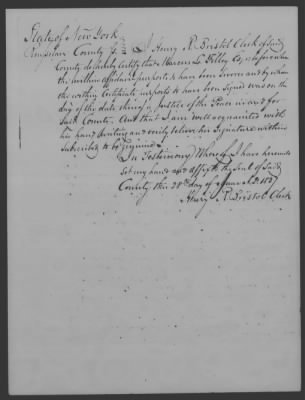 State of New York
Rensselaer County } I Henry R. Bristol Clerk of said
County do hereby Certify that Marcus L. Filley Esq. before whom
the within affidavit purports to have been sworn and by whom
the within Certificate purports to have been signed was on the
day of the date thereof a Justice of the Peace in and for
said County. And that I am well acquainted with
his hand writing and verily believe his Signature within
Subscribed to be genuine
In Testimony Whereof I have hereunto
set my hand and affixed the Seal of said
County this 28th day of A.D. 1837
Henry R. Bristol Clerk